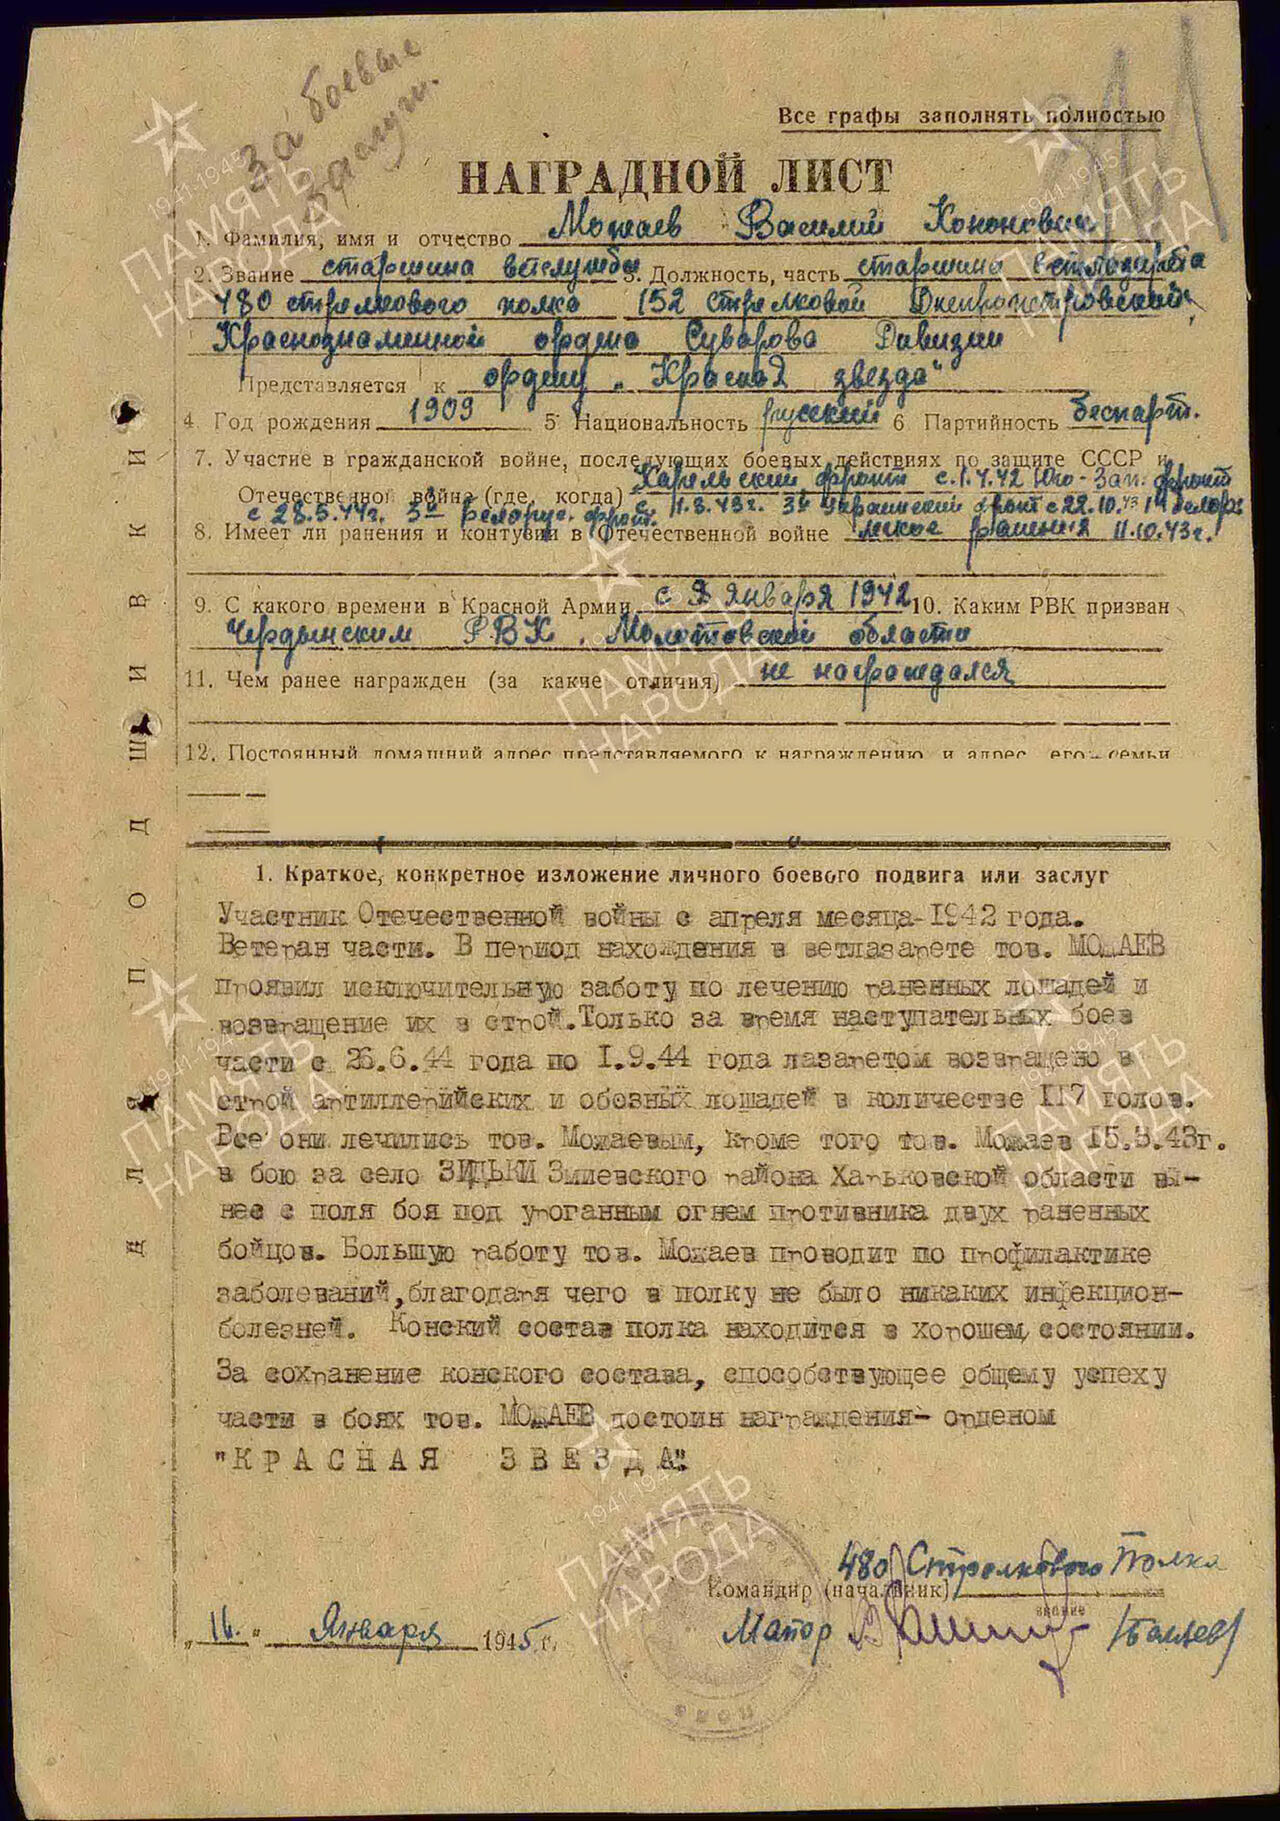 За боевые
заслуги.
Все графы заполнять полностью
НАГРАДНОЙ ЛИСТ
1. Фамилия, имя и отчество Можаев Василий Кононович
2. Звание старшина ветслужбы 3. Должность, часть старшина ветлазарета
480 стрелкового полка 152 стрелковой Днепропетровской,
Краснознаменной ордена Суворова Дивизии
Представляется к ордену „Красная звезда"
4. Год рождения 1909 5. Национальность русский 6. Партийность беспарт.
7. Участие в гражданской войне, последующих боевых действиях по защите СССР и
Отечественной войне (где, когда) Карельский фронт с.1.4.42 Юго-Зап. фронт
с 11.8.43г. 3й Украинский фронт с 22.10.43 1й белорус
с 28.5.44г. 3й Белорус. фронт.
8. Имеет ли ранения и контузии в Отечественной войне легкое ранения 11.10.43г.
9. С какого времени в Красной Армии с января 1942 10. Каким РВК призван
Чердынским РВК. Молотовской области
11. Чем ранее награжден (за какие отличия) не награждался
12. Постоянный домашний адрес представляемого к награждению и адрес его семьи
ДЛЯ ПОДШИВКИ
1. Краткое, конкретное изложение личного боевого подвига или заслуг
Участник Отечественной войны с апреля месяца-1942 года.
Ветеран части. В период нахождения в ветлазарете тов. МОЖАЕВ
проявил исключительную заботу по лечению раненных лошадей и
возвращение их в строй.Только за время наступательных боев
части с 26.6.44 года по 1.9.44 года лазаретом возвращено в
строй артиллерийских и обозных лошадей в количестве 117 голов.
Все они лечились тов. Можаевым, кроме того тов. Можаев 15.8.43г.
в бою за село ЗИДЬКИ Змиевского района Харьковской области вы-
нес с поля боя под ураганным огнем противника двух раненных
бойцов. Большую работу тов. Можаев проводит по профилактике
заболеваний,благодаря чего в полку не было никаких инфекцион-
болезней. Конский состав полка находится в хорошем состоянии.
За сохранение конского состава, способствующее общему успеху
части в боях тов. МОЖАЕВ достоин награждения- орденом
"КРАСНАЯ ЗВЕЗДА".
480 Стрелкового Полка
Командир (начальник)
звание
„16." Января 1945 г. Майор /Баляев/
ПАМЯТЬ НАРОДА
1941-1945